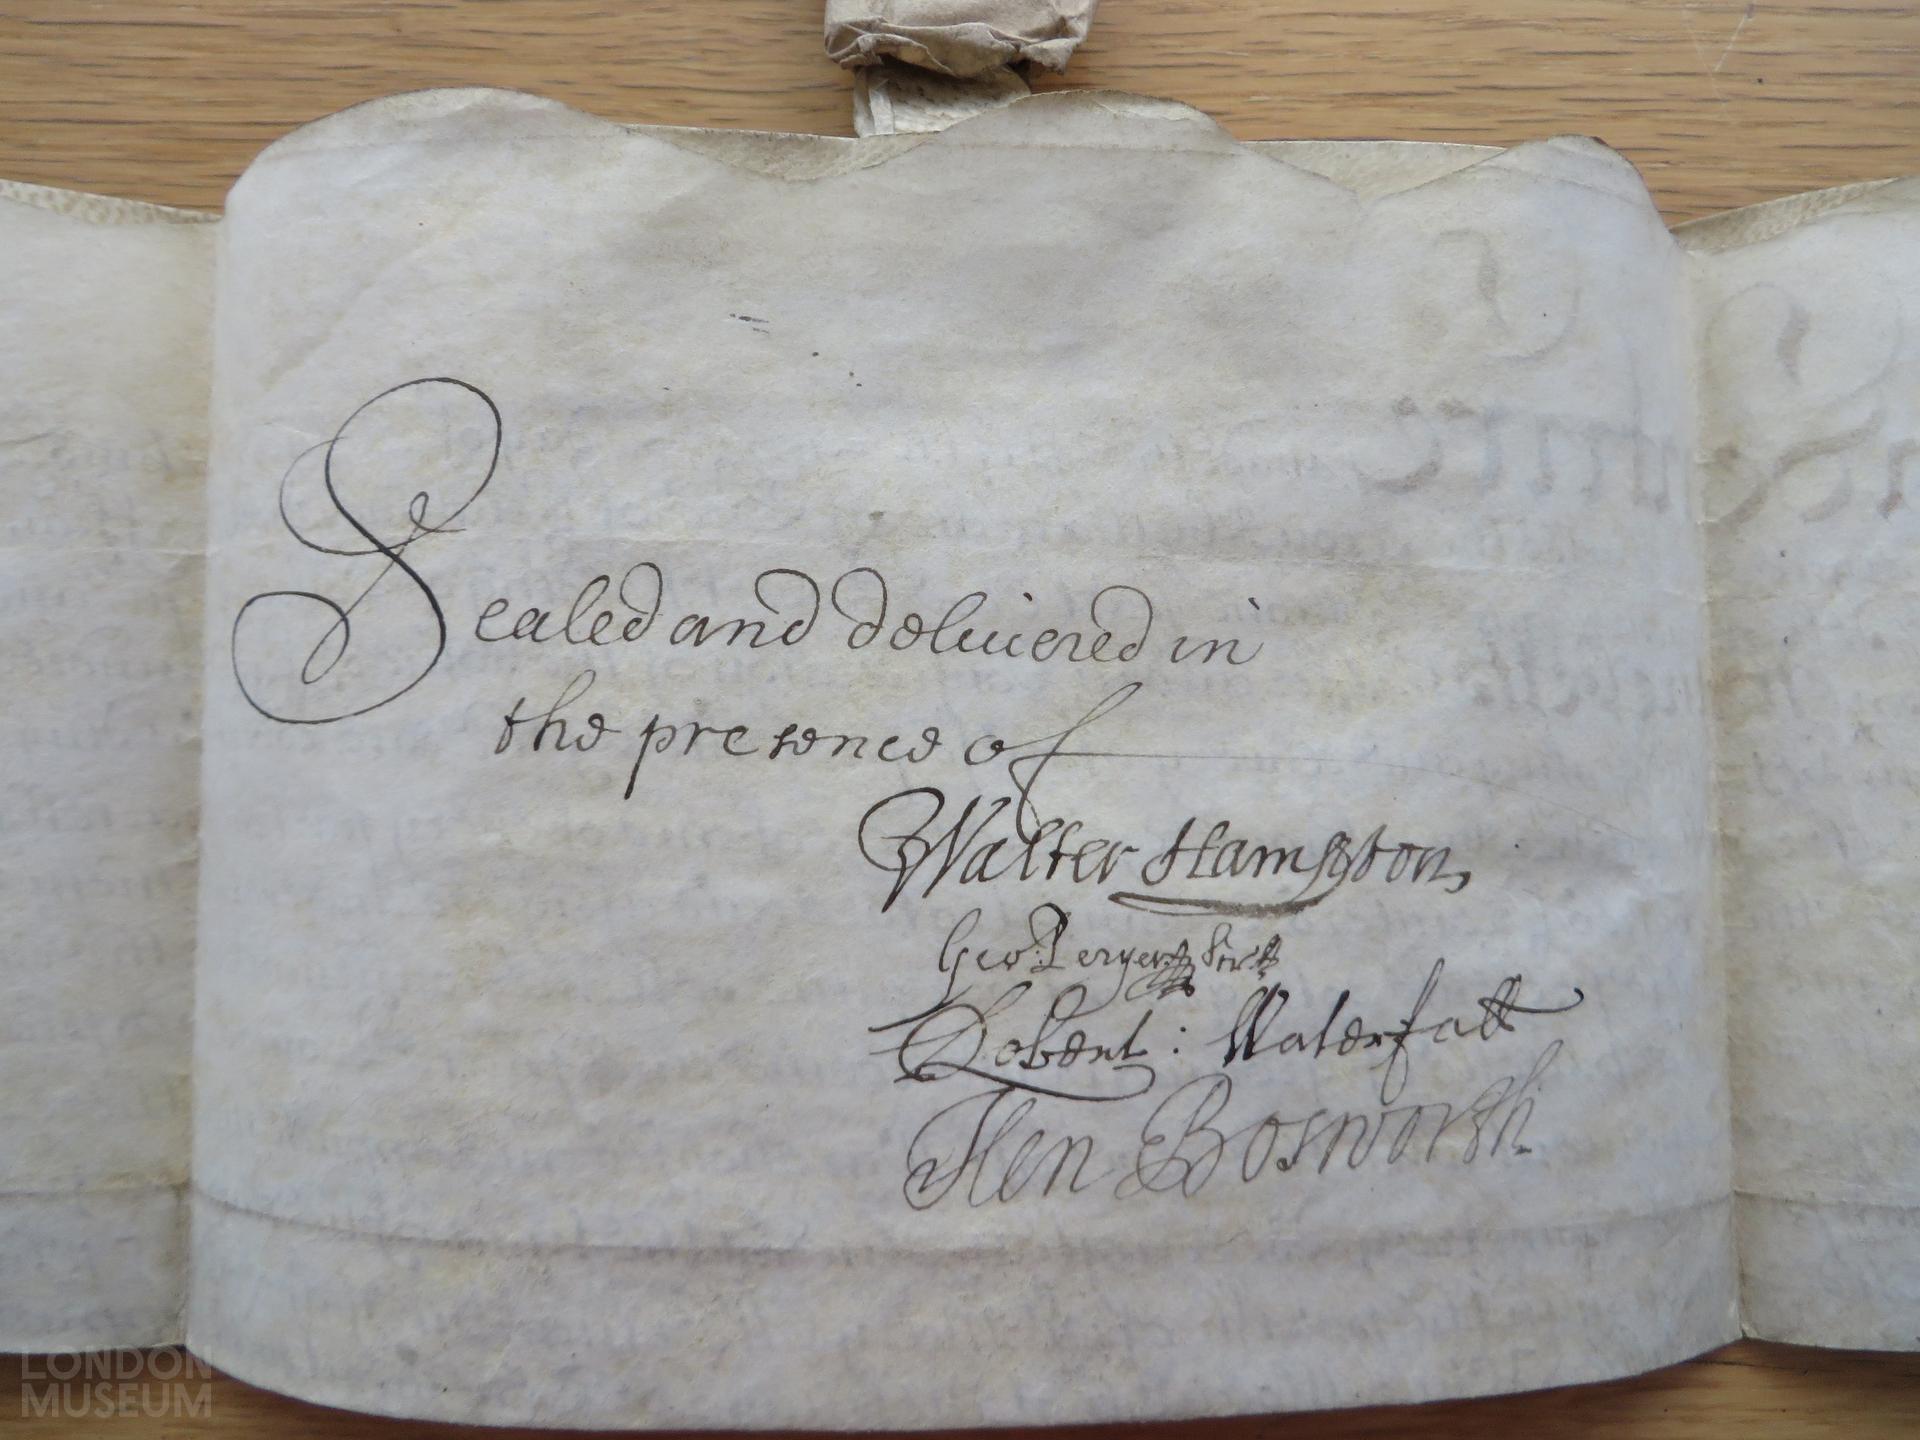 Sealed and deliuered in
the presence of
Walter Hampton
Geo:
Robert : Waterfall
Hen Bosworth
LONDON
MUSEUM